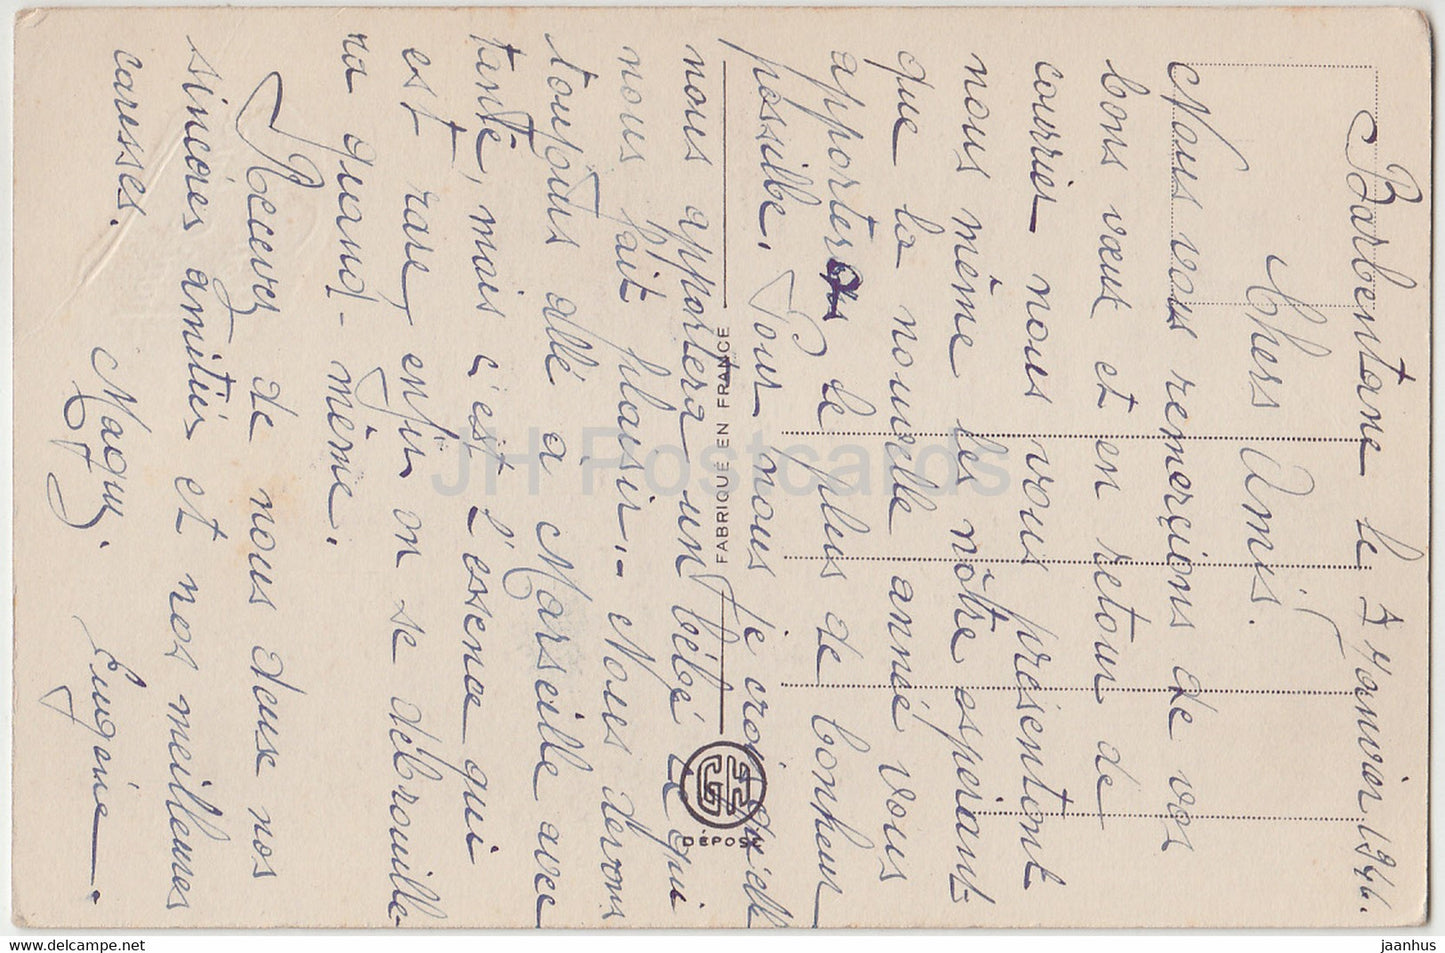 Barbentane le 7 Janvier 1946.
Chers Amis.
Nous vous remerçions de vos
bons vœux et en retour de
courrier nous vous présentont
nous même les nôtre esperiant
que la nouvelle année vous
apporter de plus de bonheur
possilbe. Pour nous je croi qu'elle
nous apportera un bébé ce qui
nous fait plaisir. - Nous devons
toujours allé a Marseille avec
tante, mais c'est l'essence qui
est rare, enfin on se débrouille-
ra quand-même.
Recevez de nous deux nos
sincéres amitiés et nos meilleures
caresses.
Maguy. Eugène.
FABRIQUÉ EN FRANCE
DÉPOSÉ
JH Postcards
https://jhpostcards.com
jaanhus